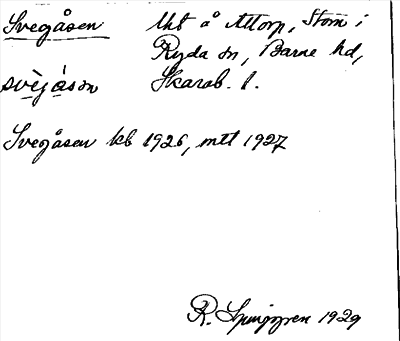 Svegåsen Ut å Attorp, Stom i
Ryda sn, Barne hd,
svègåson Skarab. l.
Svegåsen kb 1926, mtl 1927
R. Ljunggren 1929